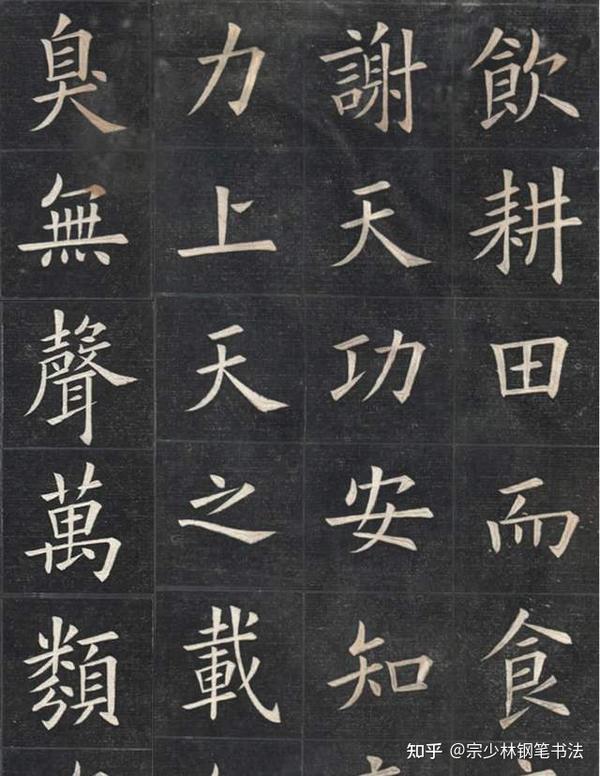 飲耕田而食
謝天功安知
力上天之載
臭無聲萬類
知乎 @宗少林钢笔书法